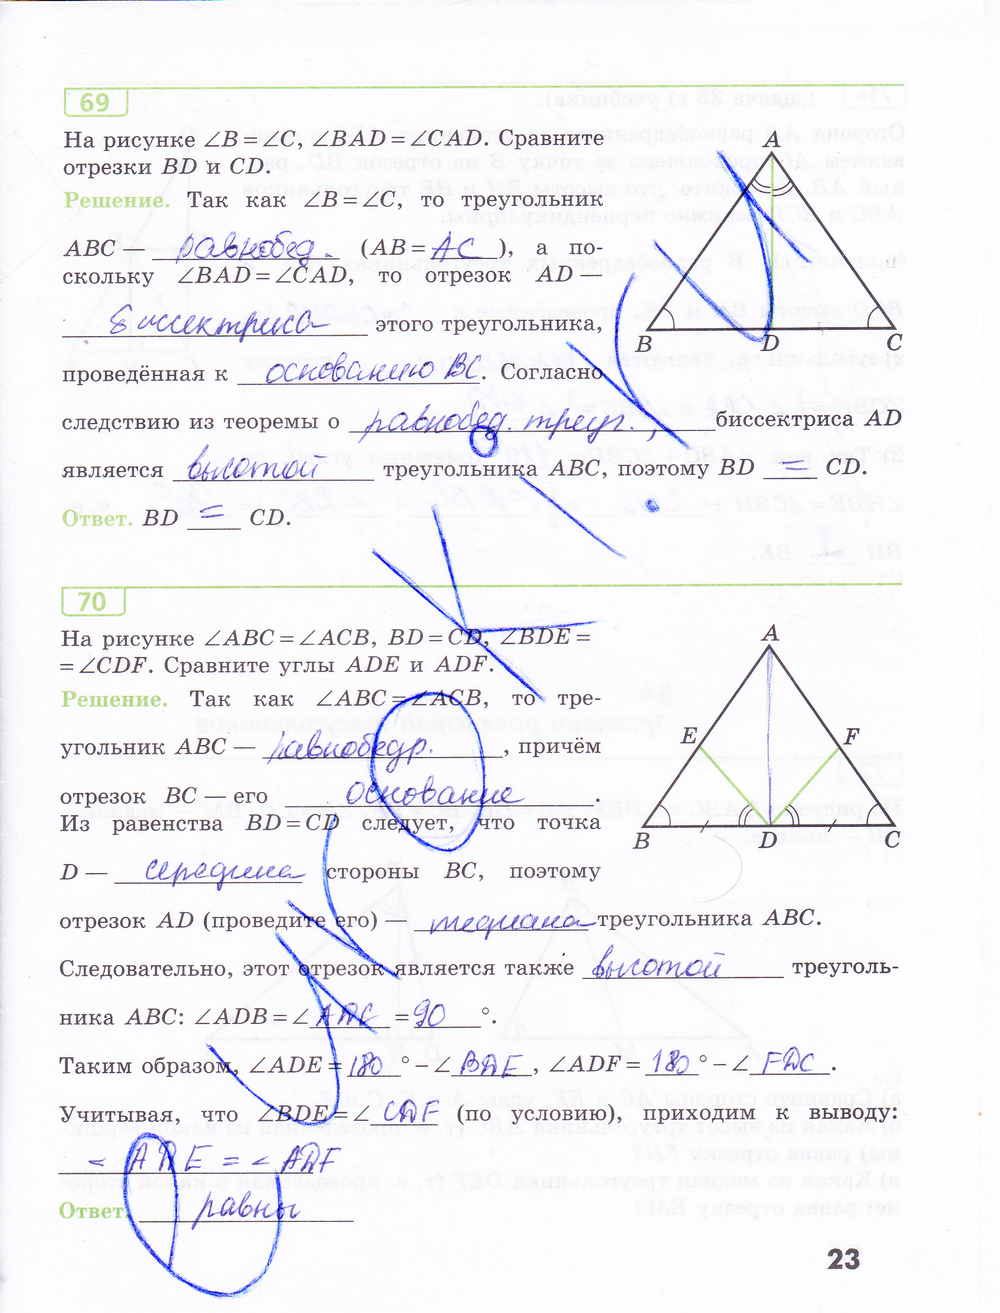 69
На рисунке ∠B = ∠C, ∠BAD = ∠CAD. Сравните
отрезки BD и CD.
Решение. Так как ∠B = ∠C, то треугольник
ABC — равнобед. (AB = AC ), а по-
скольку ∠BAD = ∠CAD, то отрезок AD —
биссектриса этого треугольника,
проведённая к основанию BC. Согласно
следствию из теоремы о равнобед. треуг., биссектриса AD
является высотой треугольника ABC, поэтому BD = CD.
Ответ. BD = CD.
A
B
D
C
70
На рисунке ∠ABC = ∠ACB, BD = CD, ∠BDE =
= ∠CDF. Сравните углы ADE и ADF.
Решение. Так как ∠ABC = ∠ACB, то тре-
угольник ABC — равнобедр. , причём
отрезок BC — его основание .
Из равенства BD = CD следует, что точка
D — середина стороны BC, поэтому
отрезок AD (проведите его) — медиана треугольника ABC.
Следовательно, этот отрезок является также высотой треуголь-
ника ABC: ∠ADB = ∠ADC = 90 °.
Таким образом, ∠ADE = 180 ° − ∠BDE, ∠ADF = 180 ° − ∠FDC.
Учитывая, что ∠BDE = ∠CDF (по условию), приходим к выводу:
∠ADE = ∠ADF
Ответ. равны
A
E
F
B
D
C
23